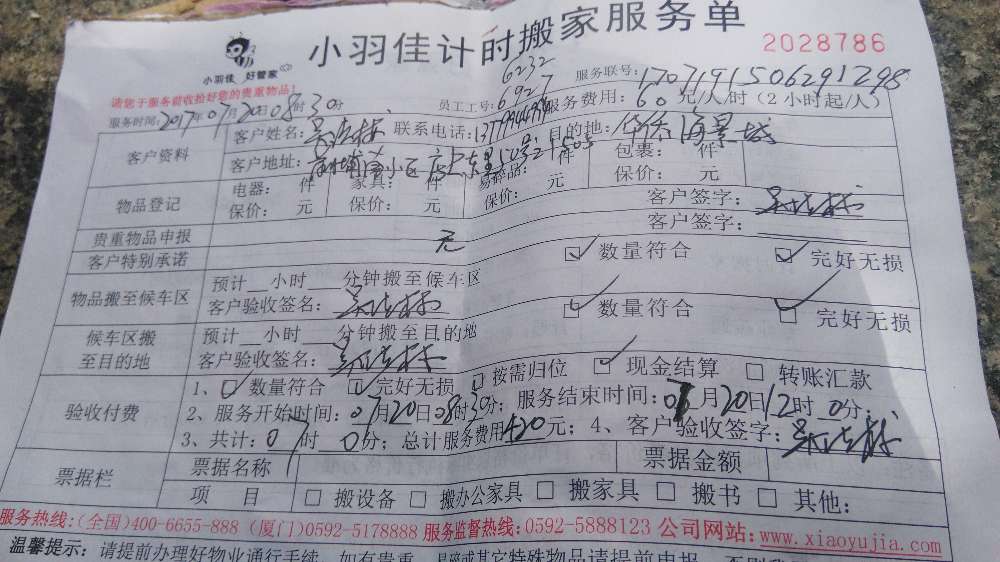 小羽佳计时搬家服务单
小羽佳 好管家
2028786
请您于服务前收拾好您的贵重物品!
6232
服务联号:170719150629 1298
服务时间:2017年07月20日08时30分 员工工号:6927 服务费用:60元/人/时(2小时起/人)
客户资料
客户姓名: 联系电话: 目的地:华侨海景城
客户地址:
物品登记
电器: 件 家具: 件 易碎品: 件 包裹: 件
保价: 元 保价: 元 保价: 元 保价: 元
客户签字:
贵重物品申报 元 客户签字:
客户特别承诺 ☑数量符合 ☑完好无损
物品搬至候车区
预计__小时___分钟搬至候车区
客户验收签名: ☑数量符合 ☑完好无损
候车区搬至目的地
预计__小时___分钟搬至目的地
客户验收签名:
验收付费
1、☑数量符合 ☑完好无损 ☑按需归位 ☑现金结算 □转账汇款
2、服务开始时间:07月20日08时30分;服务结束时间:07月20日12时0分;
3、共计:07时0分;总计服务费用420元;4、客户验收签字:
票据栏
票据名称 票据金额
项 目 □搬设备 □搬办公家具 □搬家具 □搬书 □其他:
服务热线:(全国)400-6655-888 (厦门)0592-5178888 服务监督热线:0592-5888123 公司网站:www.xiaoyujia.com
温馨提示:请提前办理好物业通行手续,如有贵重、易碎或其它特殊物品请提前申报,